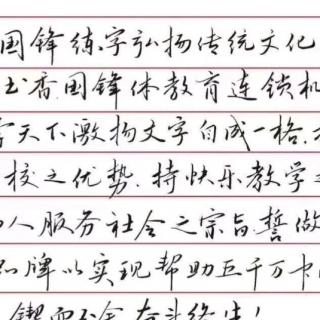 国锋练字弘扬传统文化
书香国锋体教育连锁机
天下激扬文字自成一格
校之优势.持快乐教学
人服务社会之宗旨.誓做
品牌以实现帮助五千万中
锲而不舍奋斗终生!